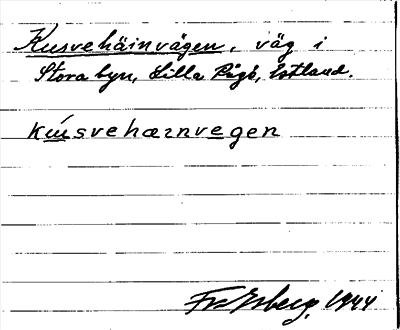 Kusvehäinvägen, väg i
Stora byn, Lilla Rågö, Estland.
kusvehærnvegen
1944